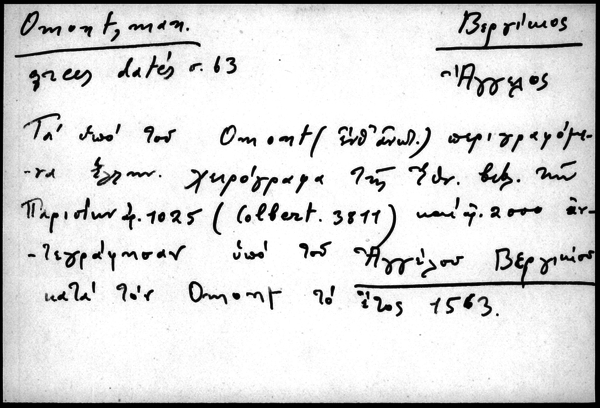 Omont, man. Βεργίκιος
grecs datés σ. 63 Ἄγγελος
Τά ὑπό τοῦ Omont (ἔνθ' ἀνωτ.) περιγραφόμε-
-να ἑλλην. χειρόγραφα τῆς Ἐθν. βιβ. τῶν
Παρισίων ἀ. 1025 (Colbert. 3811) καί ἀ. 2000 ἀν-
-τεγράφησαν ὑπό τοῦ Ἀγγέλου Βεργικίου
κατά τόν Omont τό ἔτος 1563.